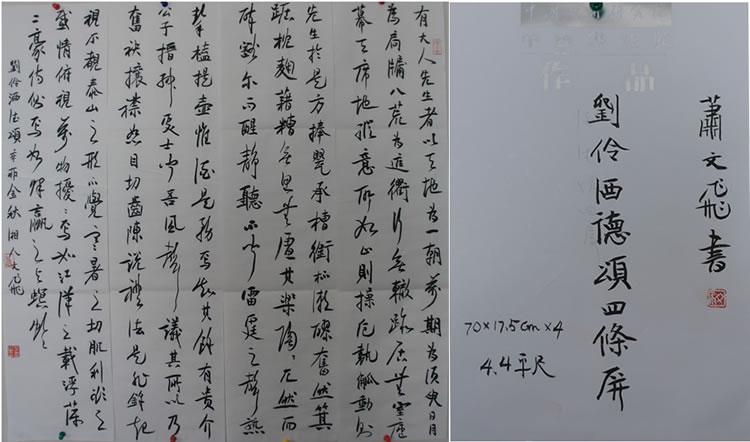 有大人先生者以天地為一朝萬期為須臾日月
為扃牖八荒為庭衢行無轍跡居無室廬
幕天席地縱意所如止則操卮執觚動則
先生於是方捧罌承槽銜杯漱醪奮然箕
踞枕麴藉糟無思無慮其樂陶陶兀然而
醉豁尔而醒靜聽不聞雷霆之聲熟
挈榼提壺惟酒是務焉知其餘有貴介
公子搢紳處士聞吾風聲議其所以乃
奮袂攘襟怒目切齒陳說禮法是非鋒起
視不覩泰山之形不覺寒暑之切肌利欲之
感情俯視萬物擾々焉如江漢之載浮萍
二豪侍側焉如蜾蠃之與螟蛉
劉伶酒德頌辛卯金秋湘人文飛
蕭文飛書
劉伶酒德頌四條屏
70×17.5cm×4
4.4平尺
作品